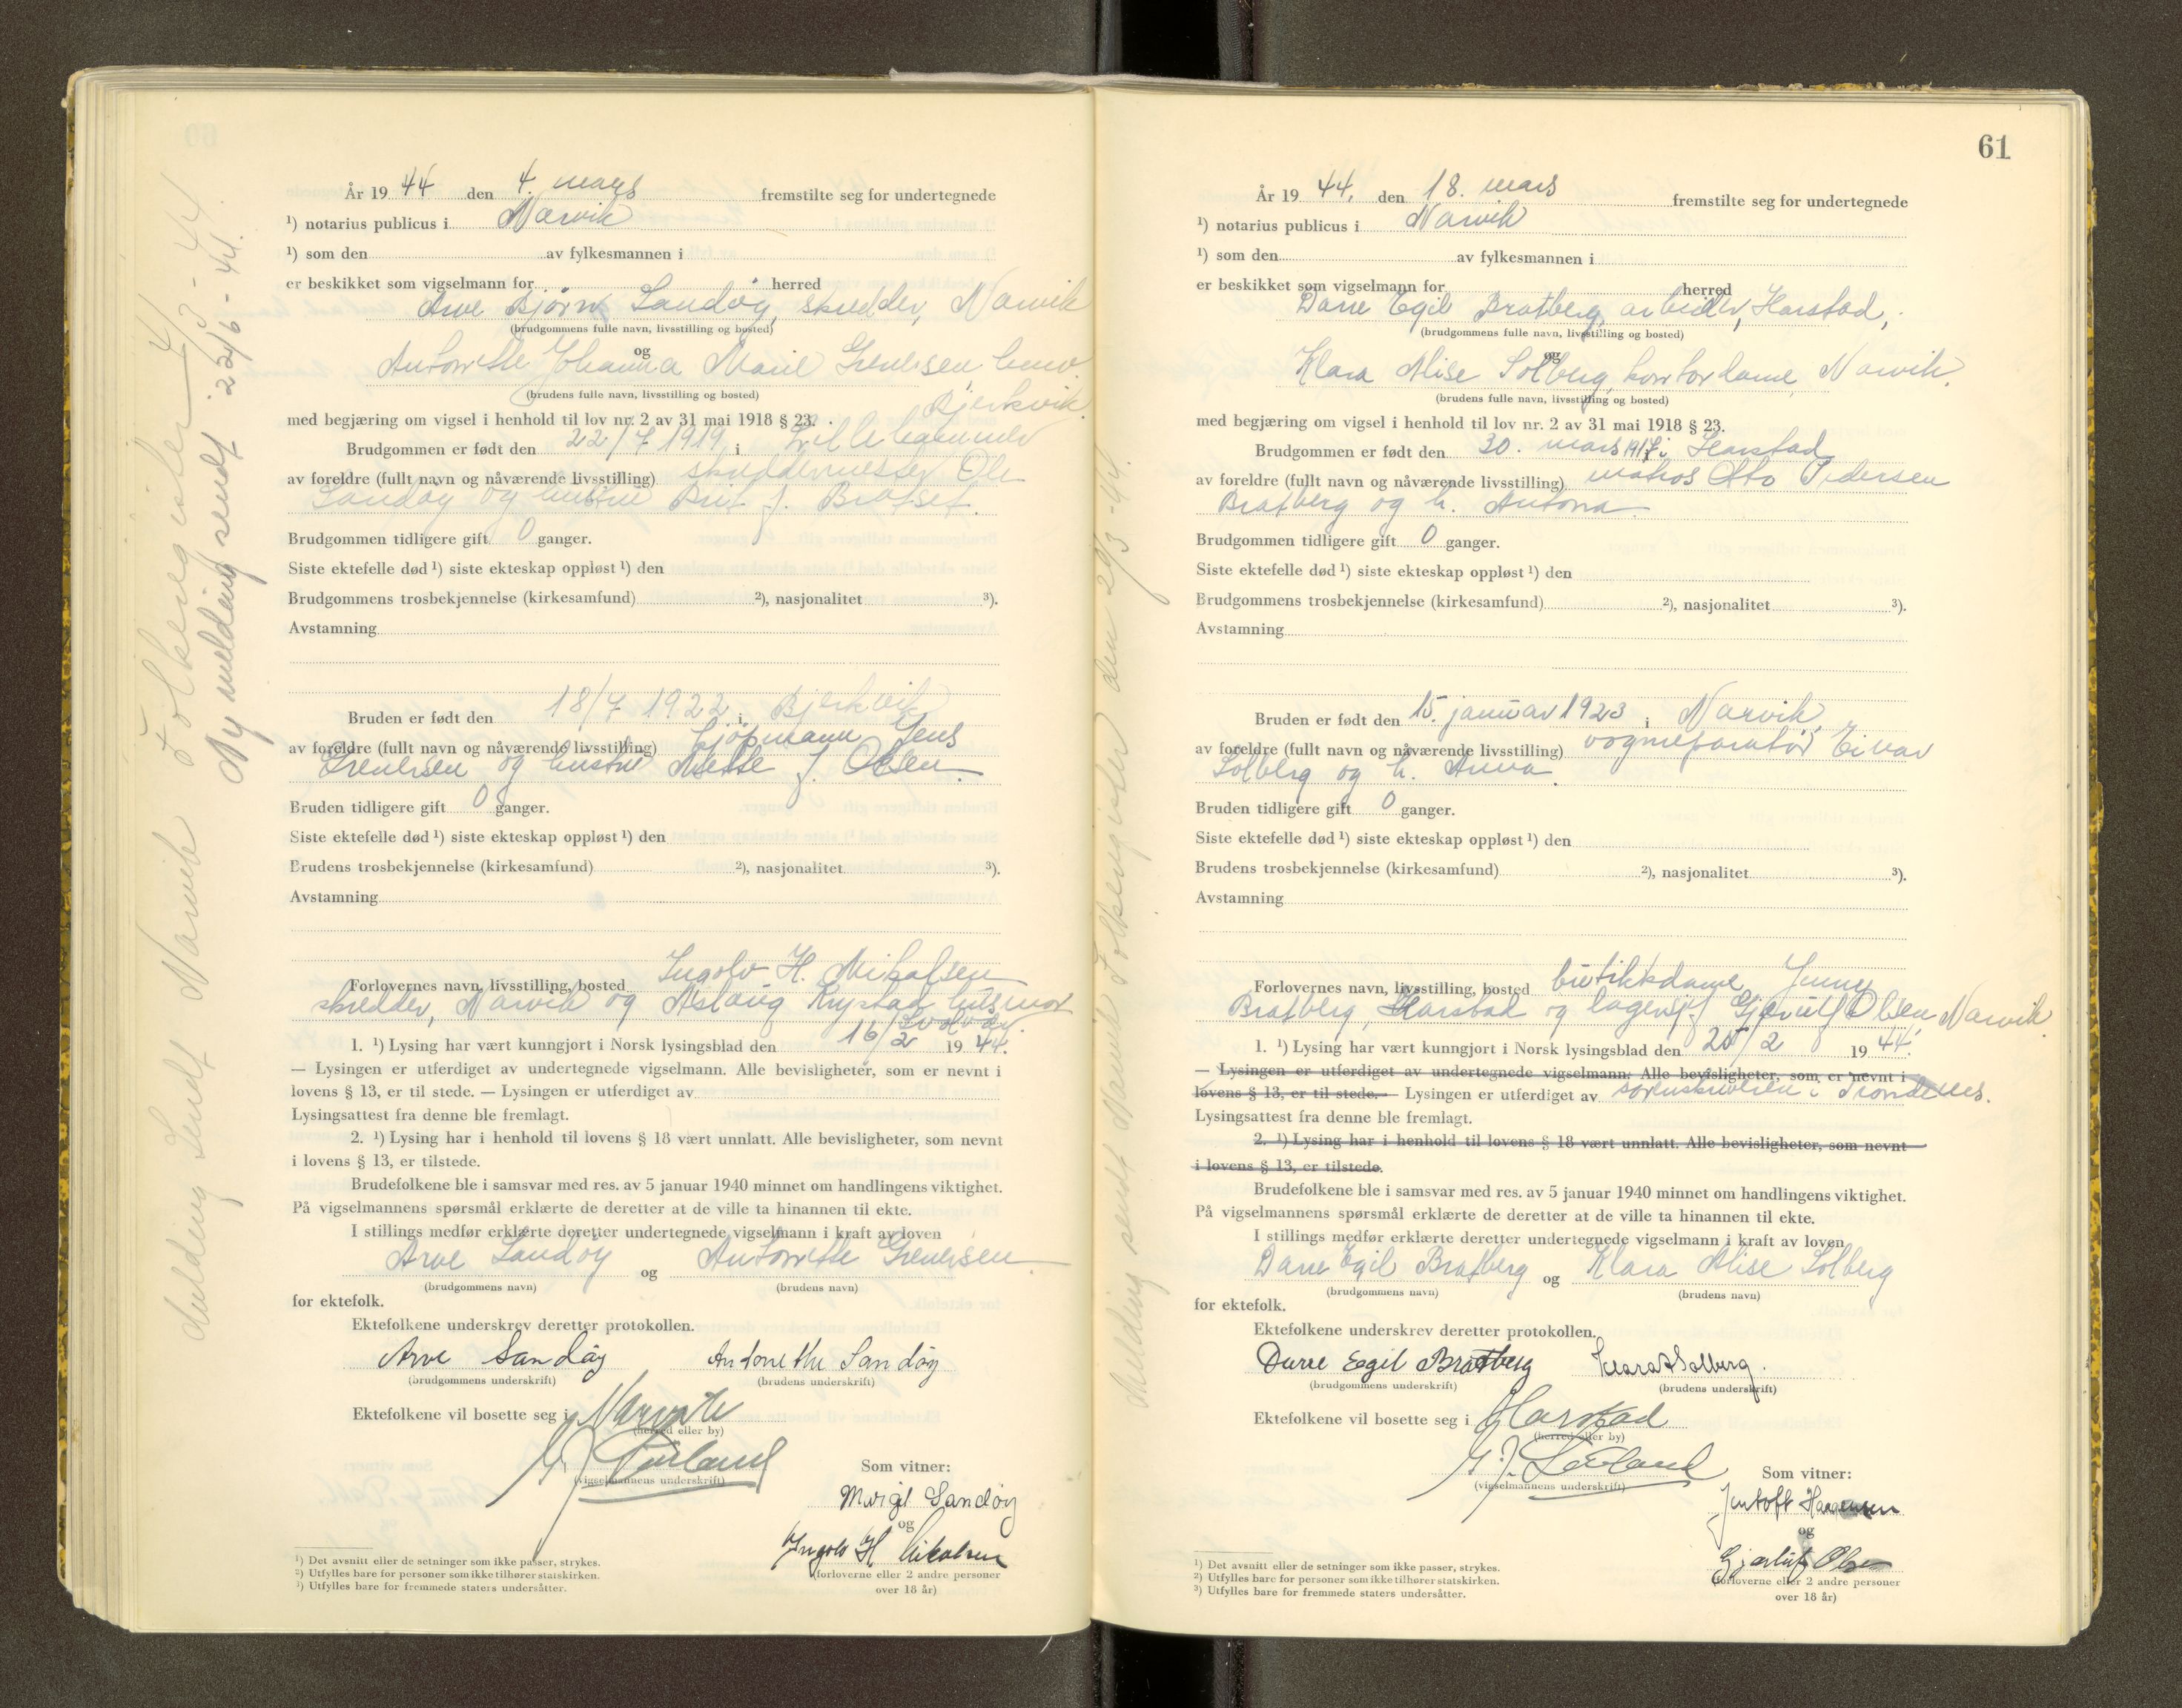 År 19 44 den 4. mars fremstilte seg for undertegnede
¹) notarius publicus i Narvik
¹) som den av fylkesmannen i
er beskikket som vigselmann for herred
Arve Bjørn Sandøy, skredder, Narvik
(brudgommens fulle navn, livsstilling og bosted)
og
Antonette Johanna Marie
(brudens fulle navn, livsstilling og bosted)
Bjerkvik.
med begjæring om vigsel i henhold til lov nr. 2 av 31 mai 1918 § 23.
Brudgommen er født den 22/7 1919 i Lillehammer
av foreldre (fullt navn og nåværende livsstilling) skreddermester Ole
Sandøy og hustru Brit J. Bratset.
Brudgommen tidligere gift 0 ganger.
Siste ektefelle død ¹) siste ekteskap oppløst ¹) den
Brudgommens trosbekjennelse (kirkesamfund) ²), nasjonalitet ³).
Avstamning
Bruden er født den 18/7 1922 i Bjerkvik
av foreldre (fullt navn og nåværende livsstilling) kjøpmann Jens
og hustru Mette J. Olsen.
Bruden tidligere gift 0 ganger.
Siste ektefelle død ¹) siste ekteskap oppløst ¹) den
Brudens trosbekjennelse (kirkesamfund) ²), nasjonalitet ³).
Avstamning
Forlovernes navn, livsstilling, bosted Ingolv H. Nikolsen
skredder, Narvik og Aslaug husmor
Svolvær.
1. ¹) Lysing har vært kunngjort i Norsk lysingsblad den 16/2 19 44.
— Lysingen er utferdiget av undertegnede vigselmann. Alle bevisligheter, som er nevnt i
lovens § 13, er til stede. — Lysingen er utferdiget av
Lysingsattest fra denne ble fremlagt.
2. ¹) Lysing har i henhold til lovens § 18 vært unnlatt. Alle bevisligheter, som nevnt
i lovens § 13, er tilstede.
Brudefolkene ble i samsvar med res. av 5 januar 1940 minnet om handlingens viktighet.
På vigselmannens spørsmål erklærte de deretter at de ville ta hinannen til ekte.
I stillings medfør erklærte deretter undertegnede vigselmann i kraft av loven
Arve Sandøy og Antonette
(brudgommens navn) (brudens navn)
for ektefolk.
Ektefolkene underskrev deretter protokollen.
Arve Sandöy Antonethe Sandöy
(brudgommens underskrift) (brudens underskrift)
Ektefolkene vil bosette seg i Narvik
(herred eller by)
(vigselmannens underskrift)
Som vitner:
Sandöy
og
Ingolv H Nikolsen
(forloverne eller 2 andre personer
over 18 år)
¹) Det avsnitt eller de setninger som ikke passer, strykes.
²) Utfylles bare for personer som ikke tilhører statskirken.
³) Utfylles bare for fremmede staters undersåtter.
Melding sendt Narvik Folkeregister 4/3-44
Ny melding sendt 22/6-44.
61
År 19 44, den 18. mars fremstilte seg for undertegnede
¹) notarius publicus i Narvik
¹) som den av fylkesmannen i
er beskikket som vigselmann for herred
Egil Bratberg, arbeider, Harstad,
(brudgommens fulle navn, livsstilling og bosted)
og
Klara Alise Solberg, kontordame, Narvik.
(brudens fulle navn, livsstilling og bosted)
med begjæring om vigsel i henhold til lov nr. 2 av 31 mai 1918 § 23.
Brudgommen er født den 30. mars 1917 i Harstad
av foreldre (fullt navn og nåværende livsstilling) matros Otto Pedersen
Bratberg og h. Antona.
Brudgommen tidligere gift 0 ganger.
Siste ektefelle død ¹) siste ekteskap oppløst ¹) den
Brudgommens trosbekjennelse (kirkesamfund) ²), nasjonalitet ³).
Avstamning
Bruden er født den 15. januar 1923 i Narvik,
av foreldre (fullt navn og nåværende livsstilling) vognreparatør Einar
Solberg og h. Anna.
Bruden tidligere gift 0 ganger.
Siste ektefelle død ¹) siste ekteskap oppløst ¹) den
Brudens trosbekjennelse (kirkesamfund) ²), nasjonalitet ³).
Avstamning
Forlovernes navn, livsstilling, bosted butikkdame Jenny
Bratberg, Harstad og Olsen Narvik.
1. ¹) Lysing har vært kunngjort i Norsk lysingsblad den 25/2 19 44.
— Lysingen er utferdiget av undertegnede vigselmann. Alle bevisligheter, som er nevnt i
lovens § 13, er til stede. — Lysingen er utferdiget av sorenskriveren i Trondenes.
Lysingsattest fra denne ble fremlagt.
2. ¹) Lysing har i henhold til lovens § 18 vært unnlatt. Alle bevisligheter, som nevnt
i lovens § 13, er tilstede.
Brudefolkene ble i samsvar med res. av 5 januar 1940 minnet om handlingens viktighet.
På vigselmannens spørsmål erklærte de deretter at de ville ta hinannen til ekte.
I stillings medfør erklærte deretter undertegnede vigselmann i kraft av loven
Egil Bratberg og Klara Alise Solberg
(brudgommens navn) (brudens navn)
for ektefolk.
Ektefolkene underskrev deretter protokollen.
Egil Bratberg Klara A Solberg.
(brudgommens underskrift) (brudens underskrift)
Ektefolkene vil bosette seg i Harstad
(herred eller by)
(vigselmannens underskrift)
Som vitner:
Jentoft
og
Olsen
(forloverne eller 2 andre personer
over 18 år)
¹) Det avsnitt eller de setninger som ikke passer, strykes.
²) Utfylles bare for personer som ikke tilhører statskirken.
³) Utfylles bare for fremmede staters undersåtter.
Melding sendt Narvik Folkeregister den 29/3-44.